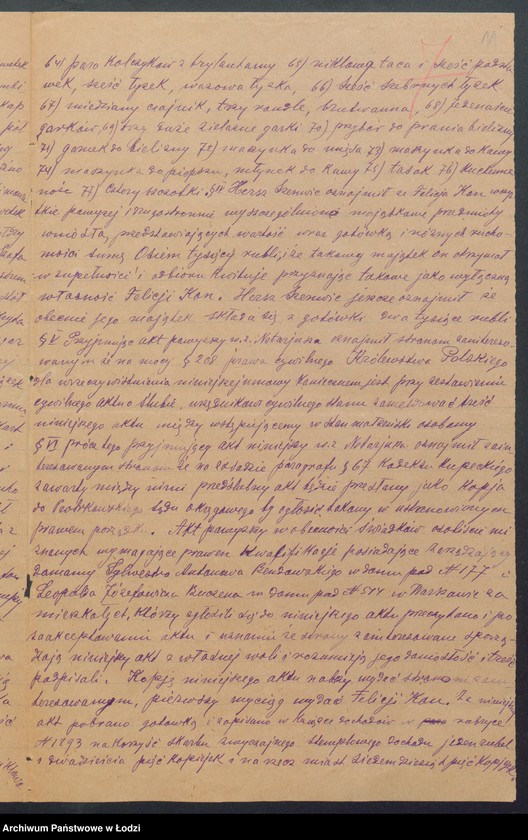 11
7
64) para kolczyków z brylantamy 65) niklowa taca i sześć podsta
wek, sześć łyżek, wazowa łyżka, 66) sześć srebrnych łyżek
67) miedziany czajnik, trzy rondle, 68) jedenaście
garków, 69) trzy duże żelazne garki 70) przybór do prania bielizny
71) garnek do bielizny 72) maszynka do mięsa 73) maszynka do kawy
74) maszynka do pieprzu, młynek do kawy 75) tasak 76) kuchenne
noże 77) cztery szczotki § IV Hersz Szenwic oznajmił że Felicja Kon wszy
stkie powyżej i drugostronnie wyszczególnione majątkowe przedmioty
wniosła, przedstawiających wartość wraz gotówką i różnych rucho-
mości sumę Osiem tysięcy rubli że takowy majątek on otrzymał
w zupełności i z odbioru kwituje przyznając takowe jako wyłączną
własność Felicji Kon. Hersz Szenwic jeszcze oznajmił że
obecnie jego majątek składa się z gotówki dwa tysiące rubli
§ V Przyjmując akt powyższy m.z. Notarjusza oznajmił stronom zaintereso
wanym że na mocy § 208 prawa cywilnego Królewstwa Polskiego
dla urzeczywistnienia niniejszej umowy koniecznem jest przy zestawieniu
cywilnego aktu ślubu, urzędnikowi cywilnego stanu zameldować treść
niniejszego aktu między wstępującemy w stan małżeński osobamy
§ VI prócz tego przyjmujący akt niniejszy m.z. Notarjusza oznajmił zain
teresowanym stronom że na zasadzie paragrafu § 67 Kodeksu Kupieckiego
zawarty między nimi przedślubny akt będzie przesłany jako kopja
do Piotrkowskiego Sądu okręgowego by ogłosić takowy w ustanowionym
prawem porządku. Akt powyższy w obecności świadków osobiście mi
znanych wymagające prawem kwalifikacje posiadające
Sylwestra Antonowa Bendowskiego w domu pod N 177 i
Leopolda Józefowicza w domu pod N 544 w Warszawie za
mieszkałych, którzy zgłosili się do niniejszego aktu przeczytano i po
zaakceptowaniu aktu i uznaniu że strony zainteresowane sporzą
dzają niniejszy akt z własnej woli i rozumieją jego doniosłość i treść
podpisali. Kopję niniejszego aktu należy wydać stronom zain
teresowanym, pierwszy wyciąg wydać Felicji Kon. Za niniejszy
akt pobrano gotówką i zapisano w księdze dochodów w rubryce
N 1893 na korzyść skarbu zwyczajnego stemplowego dochodu jeden rubel
i dwadzieścia pięć kopiejek i na rzecz miast siedemdziesiąt pięć kopiejek.
Archiwum Państwowe w Łodzi